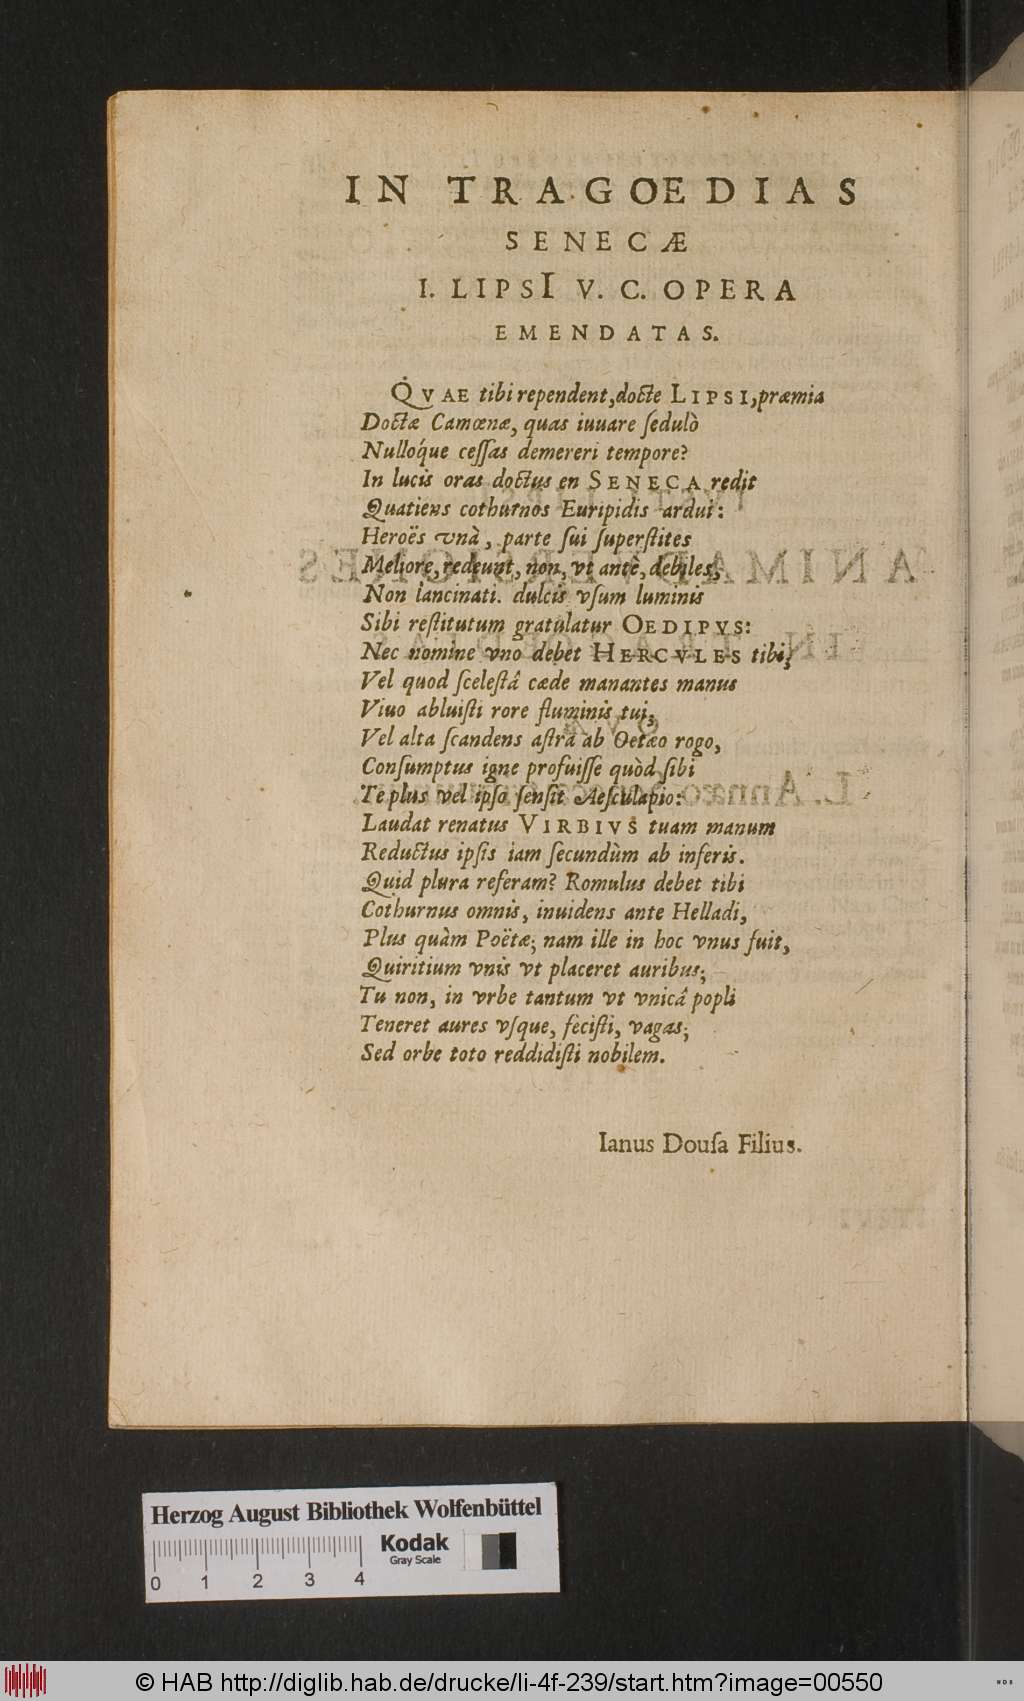 IN TRAGOEDIAS
SENECÆ
I. LIPSI V. C. OPERA
EMENDATAS.
QVAE tibi rependent, docte LIPSI, præmia
Doctæ Camœnæ, quas iuuare ſedulò
Nulloq́ue ceſſas demereri tempore?
In lucis oras doctus en SENECA redit
Quatiens cothurnos Euripidis ardui:
Heroës vnà, parte ſui ſuperſtites
Meliore, redeunt, non, vt antè, debiles,
Non lancinati. dulcis vſum luminis
Sibi reſtitutum gratulatur OEDIPVS:
Nec nomine vno debet HERCVLES tibi,
Vel quod ſceleſtâ cæde manantes manus
Viuo abluiſti rore fluminis tui,
Vel alta ſcandens aſtra ab Oetæo rogo,
Conſumptus igne profuiſſe quòd ſibi
Te plus vel ipſo ſenſit Aeſculapio:
Laudat renatus VIRBIVS tuam manum
Reductus ipſis iam ſecundùm ab inferis.
Quid plura referam? Romulus debet tibi
Cothurnus omnis, inuidens ante Helladi,
Plus quàm Poëtæ; nam ille in hoc vnus fuit,
Quiritium vnis vt placeret auribus;
Tu non, in vrbe tantum vt vnicâ popli
Teneret aures vſque, feciſti, vagas;
Sed orbe toto reddidiſti nobilem.
Ianus Douſa Filius.
Herzog August Bibliothek Wolfenbüttel
Kodak
Gray Scale
0 1 2 3 4
© HAB http://diglib.hab.de/drucke/li-4f-239/start.htm?image=00550